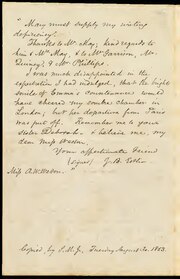 "Mary must supply my writing
deficiency."
Thanks to Mr. May, kind regards to
him & Mrs. May, & to Mr. Garrison, Mr.
Quincy, & Mr. Phillips.
I was much disappointed in the
expectation I had indulged, that the bright
smile of Emma's countenance would
have cheered my sombre chamber in
London; but her departure from Paris
was put off. Remember me to your
sister Deborah, & believe me, my
dear Miss Weston,
Your affectionate friend
(Signed) J. B.
Miss A. W. Weston.
Copied by Tuesday August 30, 1853.